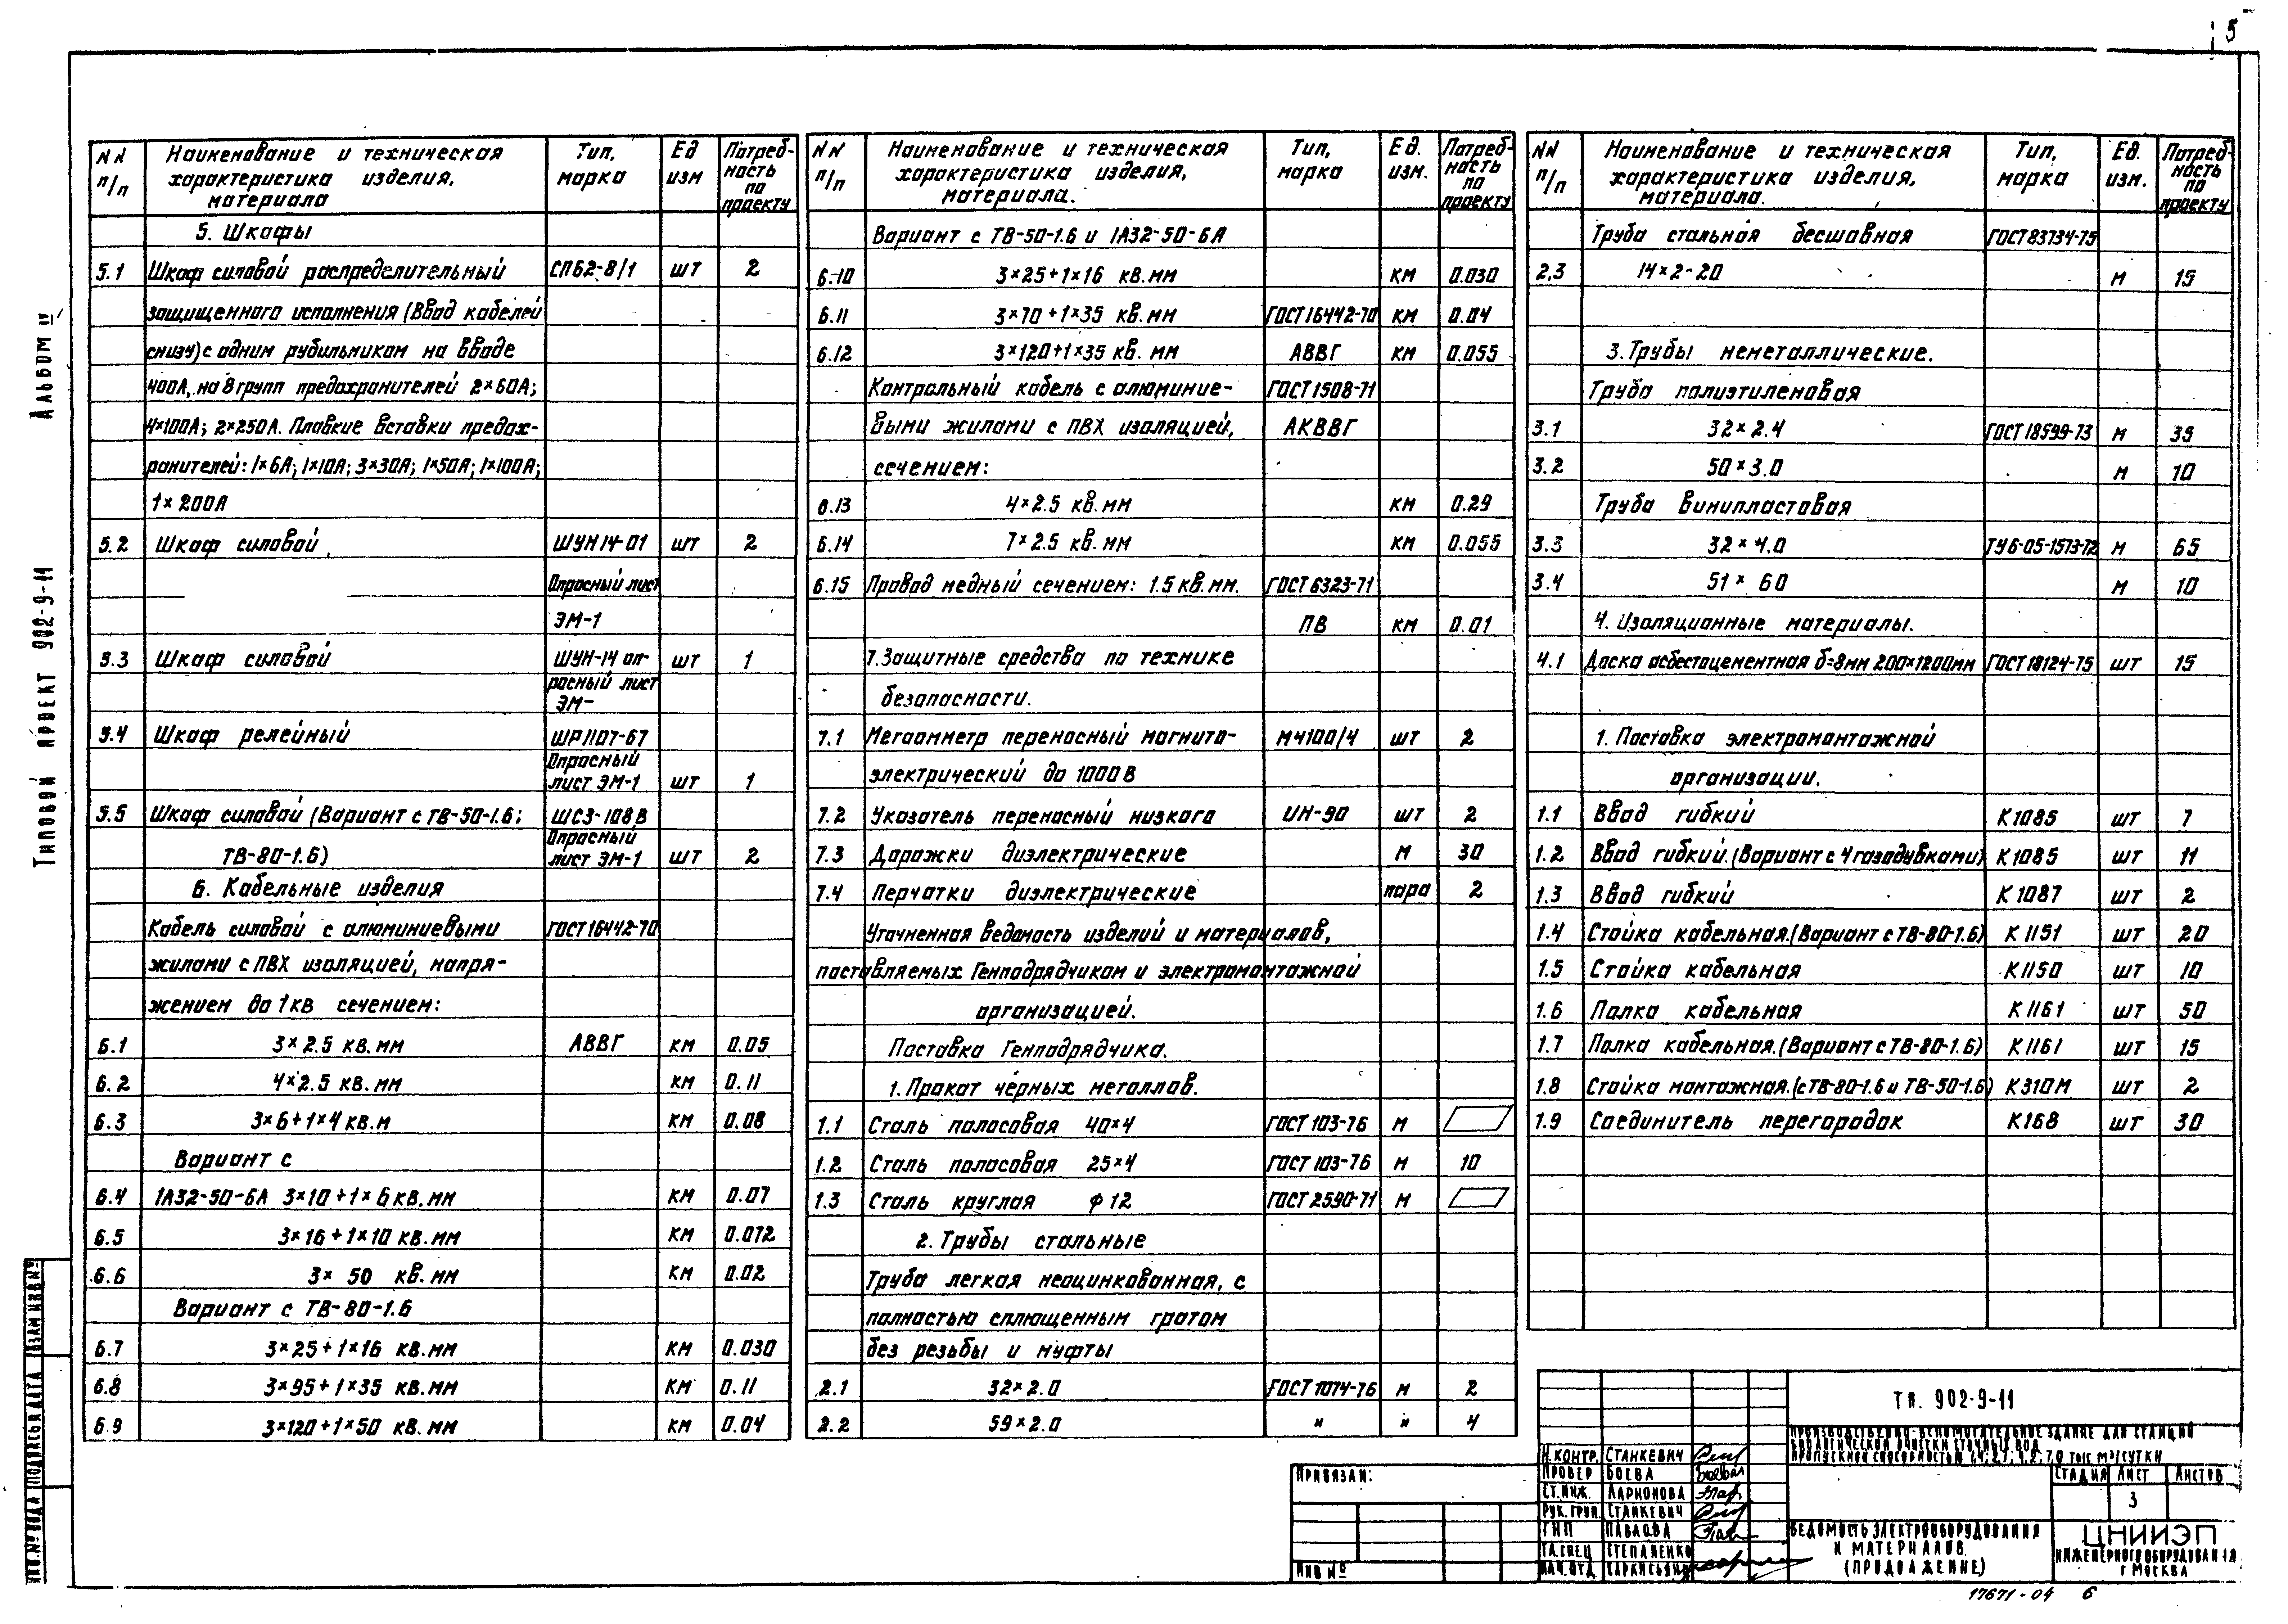 5
Альбом IV
Типовой проект 902-9-11
NN п/п | Наименование и техническая характеристика изделия, материала | Тип, марка | Ед изм | Потреб-ность по проекту
5. Шкафы
5.1 Шкаф силовой распределительный СП62-8/1 шт 2
защищенного исполнения (Ввод кабелей
снизу) с одним рубильником на вводе
400А, на 8 групп предохранителей 2×60А;
4×100А; 2×250А. Плавкие вставки предох-
ранителей: 1×6А; 1×10А; 3×30А; 1×50А; 1×100А;
1×200А
5.2 Шкаф силовой ШУН14-01 шт 2
Опросный лист
ЭМ-1
5.3 Шкаф силовой ШУН-14 оп- шт 1
росный лист
ЭМ-
5.4 Шкаф релейный ШР1107-67
Опросный
лист ЭМ-1 шт 1
5.5 Шкаф силовой (Вариант с ТВ-50-1.6; ШСЗ-108В
Опросный
ТВ-80-1.6) лист ЭМ-1 шт 2
6. Кабельные изделия
Кабель силовой с алюминиевыми ГОСТ16442-70
жилами с ПВХ изоляцией, напря-
жением до 1кв сечением:
6.1 3×2.5 кв.мм АВВГ км 0.05
6.2 4×2.5 кв.мм км 0.11
6.3 3×6+1×4 кв.м км 0.08
Вариант с
6.4 1А32-50-6А 3×10+1×6 кв.мм км 0.07
6.5 3×16+1×10 кв.мм км 0.072
6.6 3×50 кв.мм км 0.02
Вариант с ТВ-80-1.6
6.7 3×25+1×16 кв.мм км 0.030
6.8 3×95+1×35 кв.мм км 0.11
6.9 3×120+1×50 кв.мм км 0.04
NN п/п | Наименование и техническая характеристика изделия, материала. | Тип, марка | Ед. изм. | Потреб-ность по проекту
Вариант с ТВ-50-1.6 и 1А32-50-6А
6.10 3×25+1×16 кв.мм км 0.030
6.11 3×70+1×35 кв.мм ГОСТ16442-70 км 0.04
6.12 3×120+1×35 кв. мм АВВГ км 0.055
Контрольный кабель с алюминие- ГОСТ1508-71
выми жилами с ПВХ изоляцией, АКВВГ
сечением:
6.13 4×2.5 кв.мм км 0.29
6.14 7×2.5 кв.мм км 0.055
6.15 Провод медный сечением: 1.5 кв.мм. ГОСТ6323-71
ПВ км 0.01
7.Защитные средства по технике
безопасности.
7.1 Мегаомметр переносный магнито- М4100/4 шт 2
электрический до 1000В
7.2 Указатель переносный низкого УН-90 шт 2
7.3 Дорожки диэлектрические м 30
7.4 Перчатки диэлектрические пара 2
Уточненная ведомость изделий и материалов,
поставляемых Генподрядчиком и электромонтажной
организацией.
Поставка Генподрядчика.
1.Прокат чёрных металлов.
1.1 Сталь полосовая 40×4 ГОСТ 103-76 м
1.2 Сталь полосовая 25×4 ГОСТ 103-76 м 10
1.3 Сталь круглая ф12 ГОСТ 2590-71 м
2. Трубы стальные
Труба легкая неоцинкованная, с
полностью сплющенным гратом
без резьбы и муфты
2.1 32×2.0 ГОСТ 1074-76 м 2
2.2 59×2.0 " " 4
NN п/п | Наименование и техническая характеристика изделия, материала. | Тип, марка | Ед. изм. | Потреб-ность по проекту
Труба стальная бесшовная ГОСТ83734-75
2.3 14×2-20 м 15
3.Трубы неметаллические.
Труба полиэтиленовая
3.1 32×2.4 ГОСТ 18599-73 м 35
3.2 50×3.0 м 10
Труба винипластовая
3.3 32×4.0 ТУ6-05-1573-72 м 65
3.4 51×60 м 10
4. Изоляционные материалы.
4.1 Доска асбестоцементная б=8мм 200×1200мм ГОСТ18124-75 шт 15
1. Поставка электромонтажной
организации.
1.1 Ввод гибкий К1085 шт 7
1.2 Ввод гибкий.(Вариант с 4 газодувками) К1085 шт 11
1.3 Ввод гибкий К 1087 шт 2
1.4 Стойка кабельная.(Вариант с ТВ-80-1.6) К 1151 шт 20
1.5 Стойка кабельная К1150 шт 10
1.6 Полка кабельная К1161 шт 50
1.7 Полка кабельная.(Вариант с ТВ-80-1.6) К1161 шт 15
1.8 Стойка монтажная.(с ТВ-80-1.6 и ТВ-50-1.6) К310М шт 2
1.9 Соединитель перегородок К168 шт 30
Привязан:
Инв №
Н.контр. Станкевич
Провер Боева
Ст.инж. Ларионова
Рук.груп. Станкевич
ГИП Павлова
Гл.спец Степаненко
Нач.отд Саркисьян
Тп. 902-9-11
Производственно-вспомогательное здание для станций
биологической очистки сточных вод
пропускной способностью 1,4; 2,7; 4,2; 7,0 тыс м³/сутки
Стадия Лист Листов
3
Ведомость электрооборудования
и материалов.
(Продолжение)
ЦНИИЭП
инженерного оборудования
г Москва
17671-04 6
Инв.№ подл Подпись и дата Взам инв №